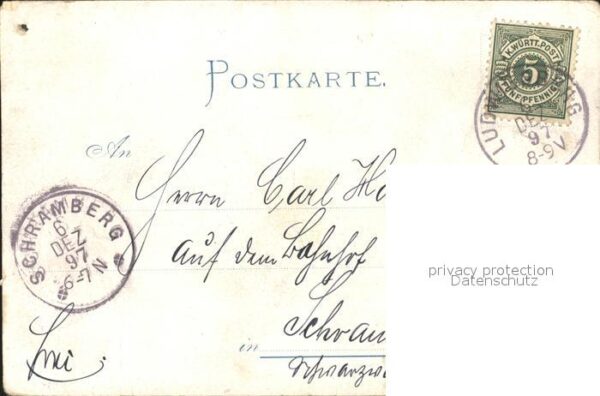 POSTKARTE.
K. WÜRTT. POST
5
FÜNF PFENNIG
LUDW
RG
DEZ
97
8-9V
An
Herrn Carl
SCHRAMBERG
6
DEZ
97
6-7N
auf dem Bahnhof
privacy protection
Datenschutz
in Schram
Schwarzw
frei